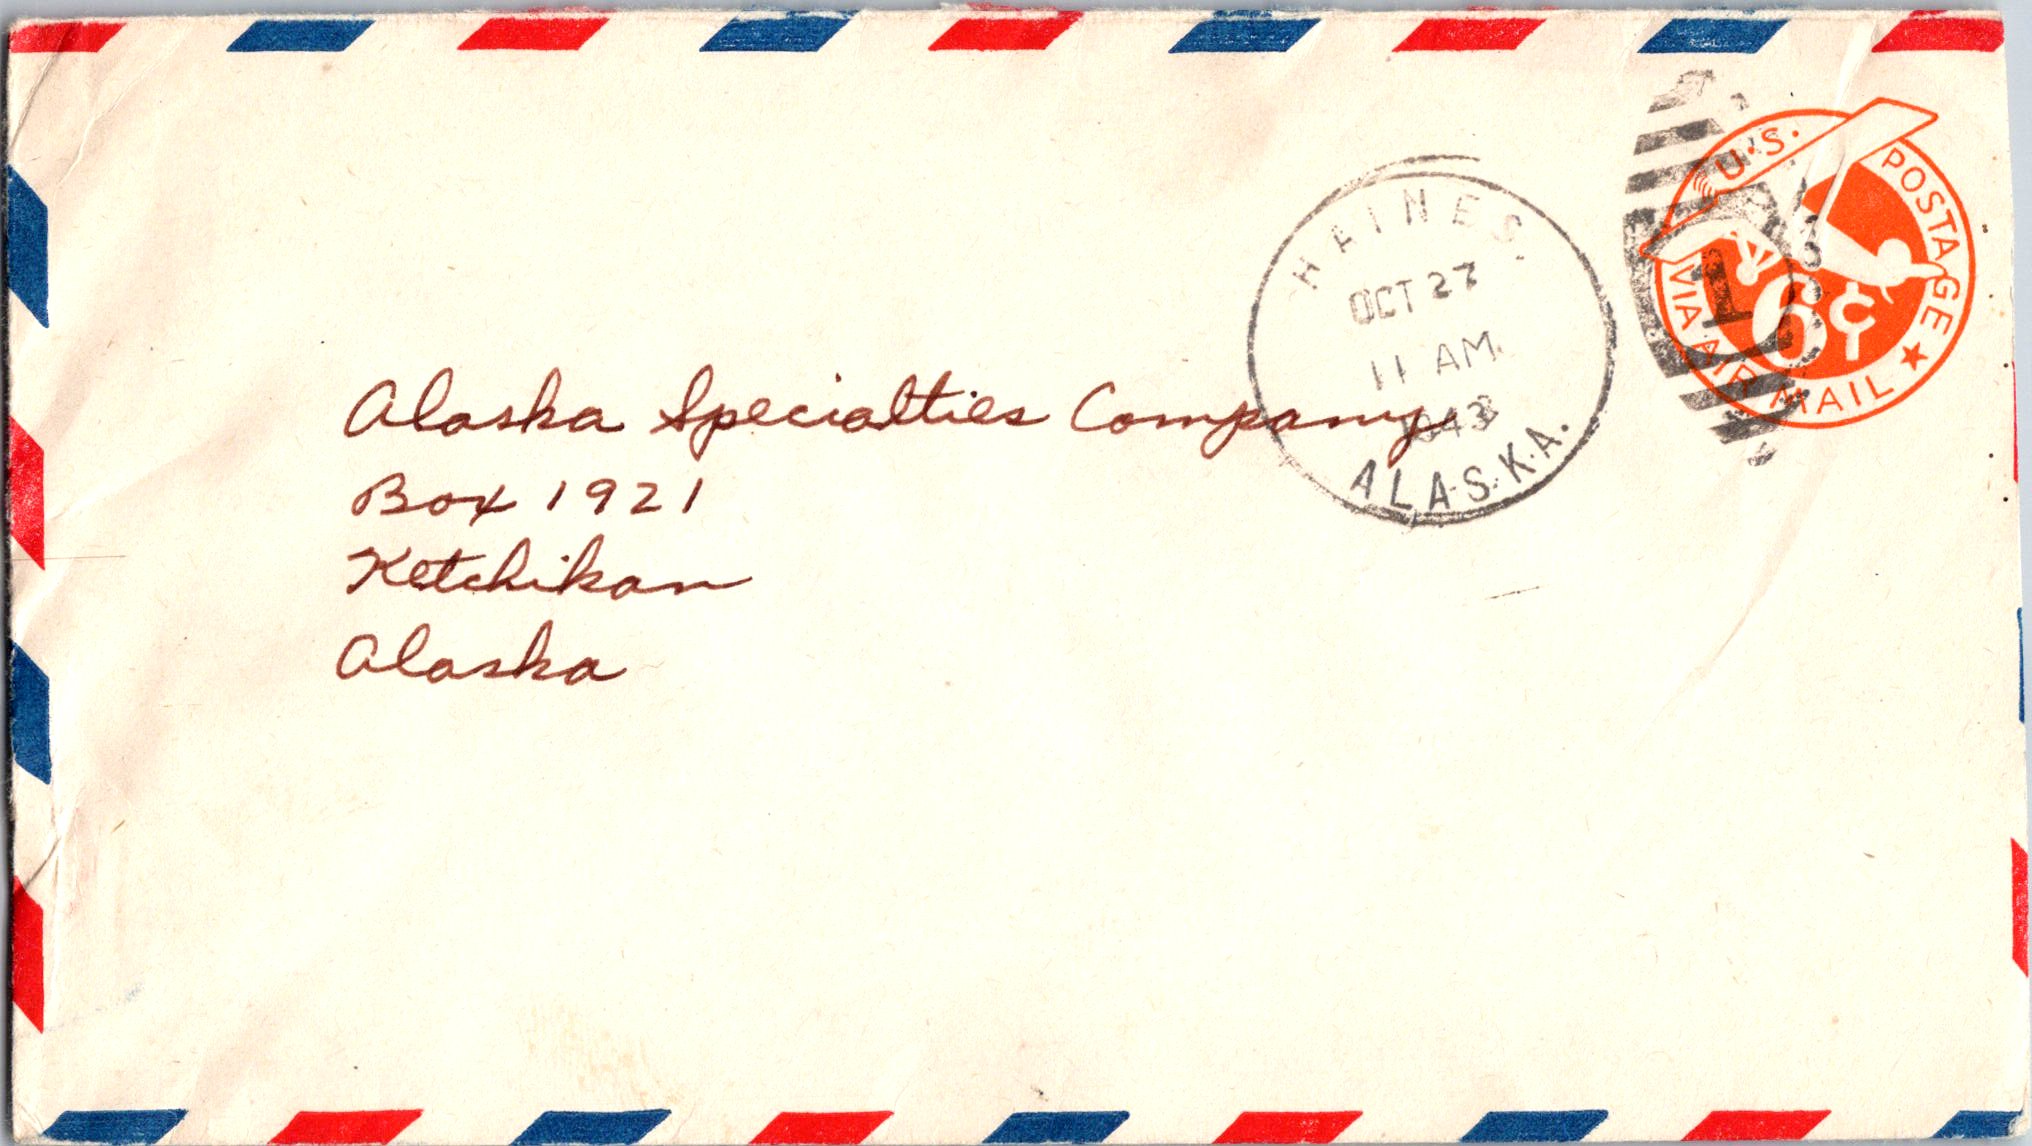 U.S. POSTAGE
VIA AIR MAIL
6¢
1
HAINES.
OCT 27
11 AM.
1943
ALASKA.
Alaska Specialties Company
Box 1921
Ketchikan
Alaska